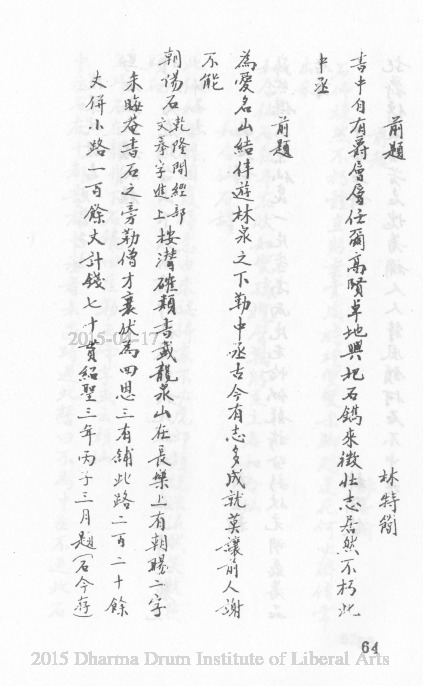 前題
林特簡
書中自有爵層層任爾高賢卓地興把石鐫來徵壯志居然不朽此
中丞
前題
為愛名山結伴遊林泉之下勒中丞古今有志多成就莫讓前人謝
不能
朝陽石乾隆間經部文奉字進上按潛確類書武龍泉山在長樂上有朝曦二字
朱晦菴書石之旁勒僧才襄伏為四恩三有舖此路二百二十餘
丈併小路一百餘丈計錢七十貫紹聖三年丙子三月題(石今存)
64
2015-04-17
2015 Dharma Drum Institute of Liberal Arts